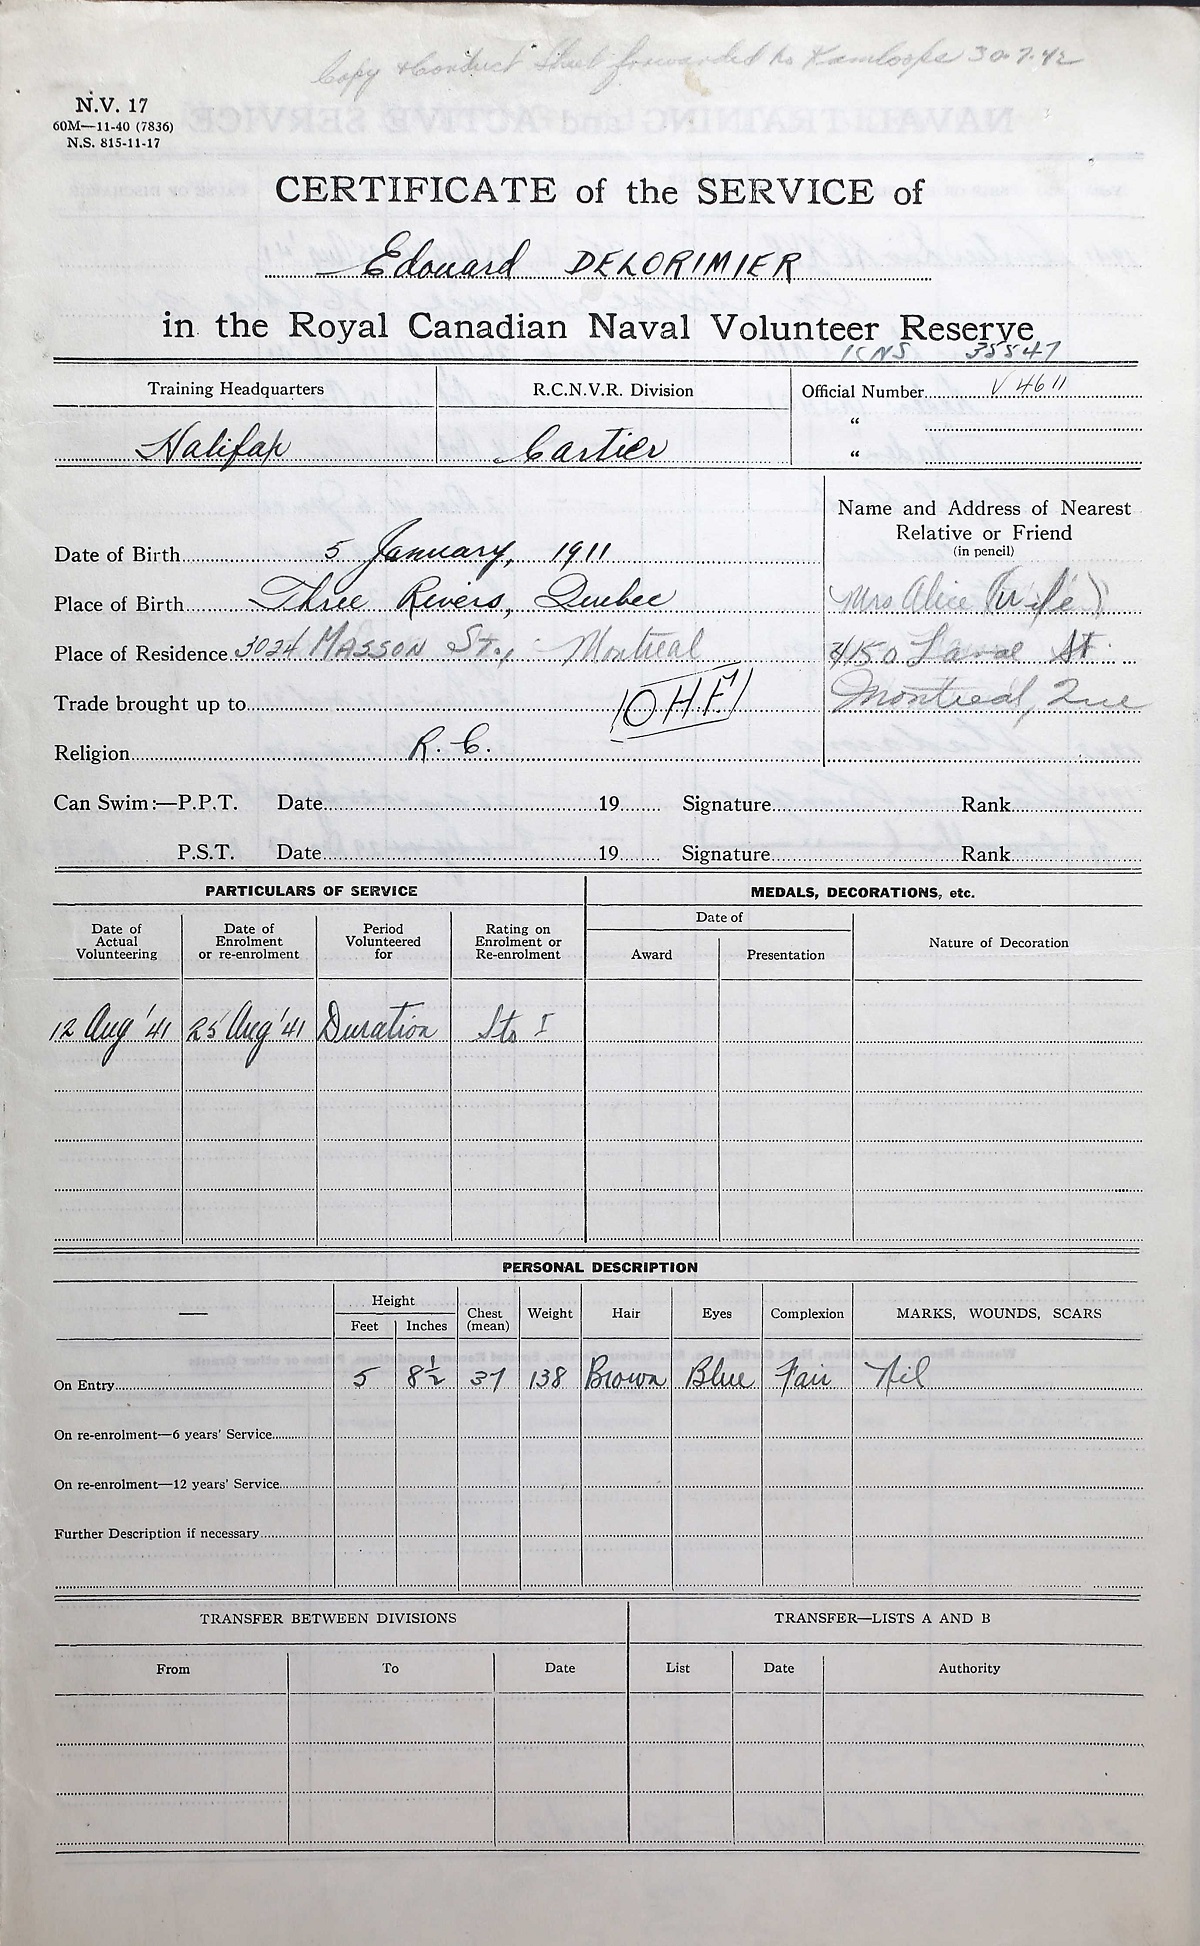 Copy & Conduct Sheet forwarded to Kamloops 30.7.42
N.V. 17
60M—11-40 (7836)
N.S. 815-11-17
CERTIFICATE of the SERVICE of
Edouard DELORIMIER
in the Royal Canadian Naval Volunteer Reserve
ICNS 35547
Training Headquarters R.C.N.V.R. Division Official Number V 4611
"
Halifax Cartier "
Name and Address of Nearest
Relative or Friend
(in pencil)
Date of Birth 5 January, 1911
Place of Birth Three Rivers, Quebec Mrs Alice (Wife)
Place of Residence 3024 MASSON St., Montreal 4150 Laval St.
Trade brought up to OHF Montreal, Que
Religion R. C.
Can Swim:—P.P.T. Date 19 Signature Rank
P.S.T. Date 19 Signature Rank
PARTICULARS OF SERVICE MEDALS, DECORATIONS, etc.
Date of Actual Volunteering Date of Enrolment or re-enrolment Period Volunteered for Rating on Enrolment or Re-enrolment Date of Award Presentation Nature of Decoration
12 Aug '41 25 Aug '41 Duration Sto I
PERSONAL DESCRIPTION
— Height Feet Inches Chest (mean) Weight Hair Eyes Complexion MARKS, WOUNDS, SCARS
On Entry 5 8½ 37 138 Brown Blue Fair Nil
On re-enrolment—6 years' Service
On re-enrolment—12 years' Service
Further Description if necessary
TRANSFER BETWEEN DIVISIONS TRANSFER—LISTS A AND B
From To Date List Date Authority